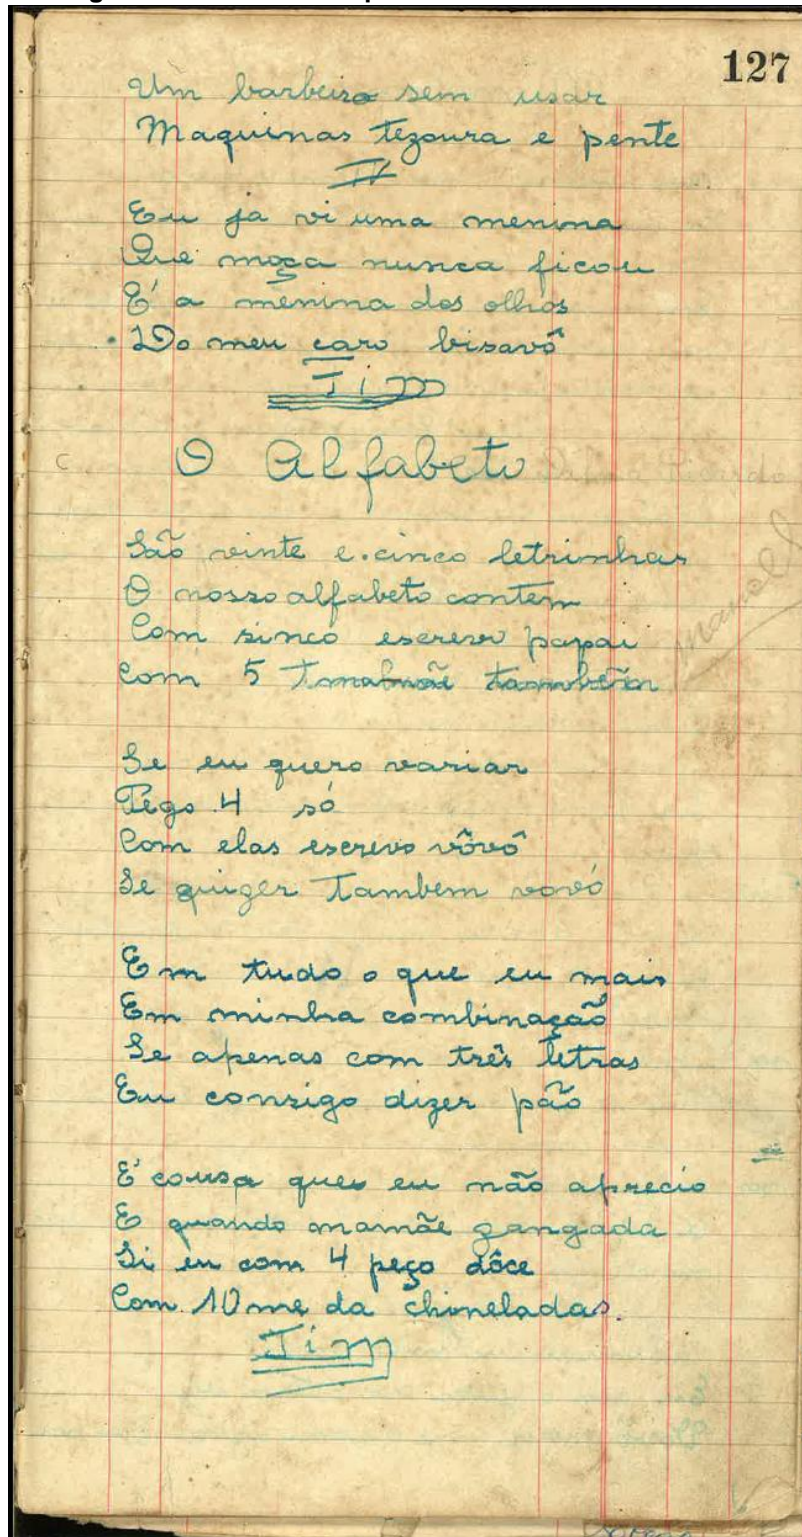 127
Um barbeiro sem usar
Maquinas tezoura e pente
IV
Eu ja vi uma menina
Que moça nunca ficou
E' a menina dos olhos
Do meu caro bisavô
Fim
O Alfabeto
São vinte e cinco letrinhas
O nosso alfabeto contem
Manoel
Com sinco escrevo papai
Com 5 mamãe tambêm
Se eu quero variar
Pégo 4 só
Com elas escrevo vôvô
Se quizer Tambem vovó
Em tudo o que eu mais
Em minha combinação
Se apenas com três letras
Eu consigo dizer pão
E' cousa que eu não aprecio
E quando mamãe zangada
Si eu com 4 peço dôce
Com 10 me da chineladas.
Fim